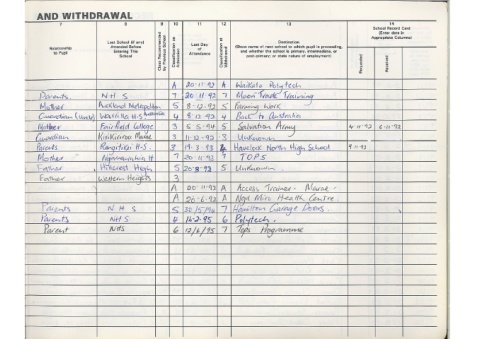 AND WITHDRAWAL
7 8 9 10 11 12 13 14
Relationship to Pupil Last School (if any) Attended Before Entering This School Class Recommended by Previous School Classification on Admission Last Day of Attendance Classification at Withdrawal Destination (Show name of next school to which pupil is proceeding, and whether the school is primary, intermediate, or post-primary; or state nature of employment) School Record Card (Enter date in Appropriate Columns) Requested Received
A 20·11·92 A Waikato Polytech
Parents. NHS 7 20·11·92 7 Trade Training
Mother Auckland Metropolitan 5 8·12·92 5 Farming Work
Guardian H·S Australia 4 8·12·92 4 Back to Australia
Mother Fairfield College 3 5·5·94 5 Salvation Army 4·11·92 6·11·92
Guardian Kirikiriroa Marae 3 11·12·92 3 Unknown
Parents Rangitikei H·S. 3 19·3·93 4 Havelock North High School 9·11·92
Mother Ngaruawahia H 7 20·11·92 7 TOPS
Father Hillcrest High 5 20·8·93 5 Unknown.
Father Western Heights 3
A 20·11·92 A Access Trainer - Marae -
A 26·6·92 A Nga Miro Health Centre.
Parents NHS 5 30/5/94 7 Hamilton Garage Doors.
Parents NHS 4 14·2·95 6 Polytech.
Parent NHS 6 12/6/95 7 Tops Programme